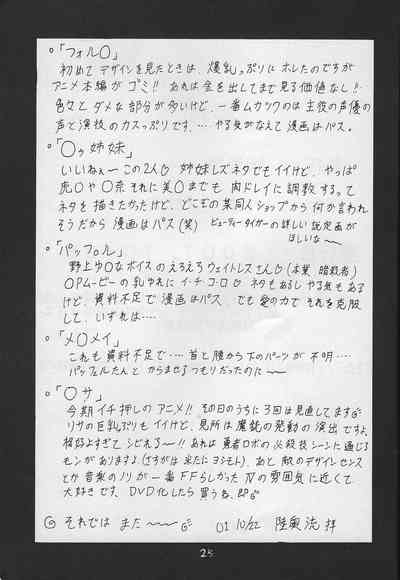 。「フォル〇」
初めてデザインを見たときは、爆乳っぷりにホレたのですが
アニメ本編がゴミ!! あれは金を出してまで見る価値なし!
色々とダメな部分が多いけど、一番ムカツクのは主役の声優の
声と演技のカスっぷりです。… やる気がなえて漫画はパス。
。「〇ゥ姉妹」
いいねぇ～この2人♡ 姉妹レズネタでもイイけど、やっぱ
虎〇や〇奈それに美〇までも肉ドレイに調教するって
ネタを描きたかったけど、どこぞの某同人ショップから何か言われ
そうだから漫画はパス(笑) ビューティータイガーの詳しい設定画が
ほしいな～
。「パッフ〇ル」
野上ゆ〇なボイスのえろえろウェイトレスさん♡(本業 暗殺者)
OPムービーの乳ゆれにイチコロ♡ ネタもあるしやる気もある
けど、資料不足で漫画はパス、でも愛の力でそれを克服
して、いずれは…
。「メ〇メイ」
これも資料不足で… 首と腰から下のパーツが不明…
パッフェルたんとからませるつもりだったのに～
。「〇サ」
今期イチ押しのアニメ!! その日のうちに3回は見直してます
リサの巨乳ぷりもイイけど、見所は魔銃の発動の演出ですよ。
格好よすぎてシビれる～!! あれは勇者ロボの必殺技シーンに通じる
モンがありますよ(さすがは )、あと敵のデザインセンス
とか音楽のノリが一番FFらしかったⅣの雰囲気に近くて
大好きです。DVD化したら買うな、即
それではまた～～ 01 10/22 陸奥流 拝
25